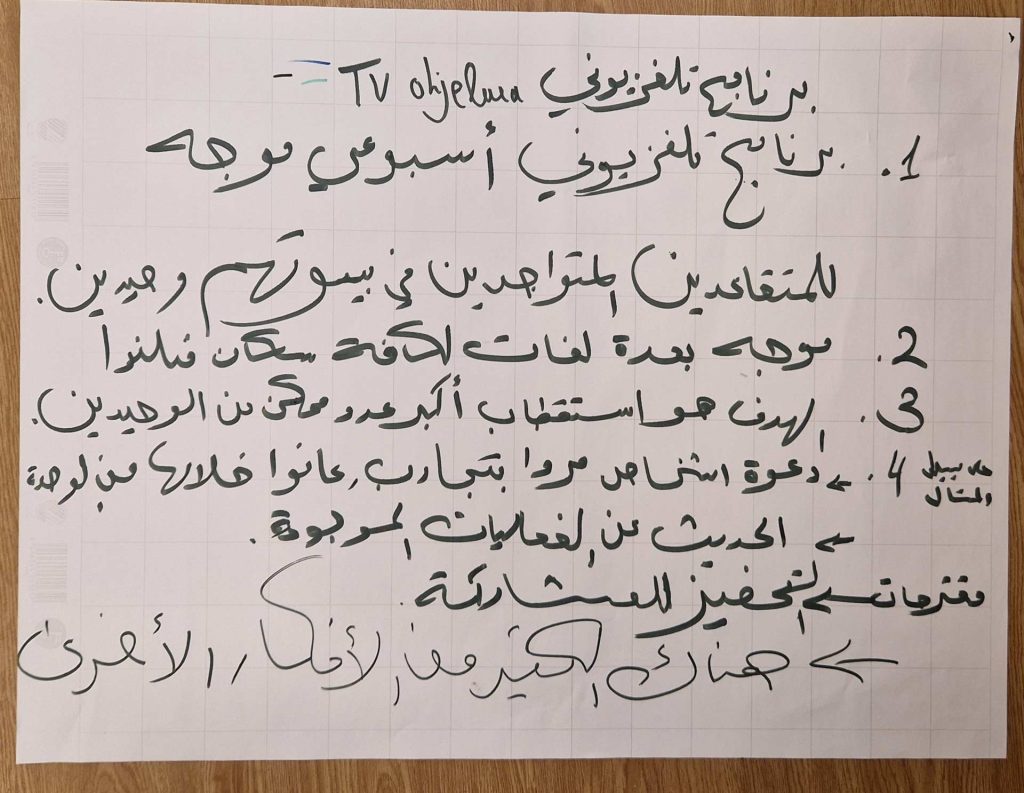 برنامج تلفزيوني TV ohjelma
1. برنامج تلفزيوني أسبوعي موجه
للمتقاعدين المتواجدين في بيوتهم وحيدين.
2. موجه بعدة لغات لكافة سكان فنلندا
3. الهدف هو استقطاب أكبر عدد ممكن من الوحيدين.
على سبيل المثال 4. ← دعوة اشخاص مروا بتجارب عانوا خلالها من لوحدة
← الحديث عن الفعاليات الموجودة.
مقترحات لتحفيز للمشاركة.
← هناك الكثير من الأفكار الأخرى